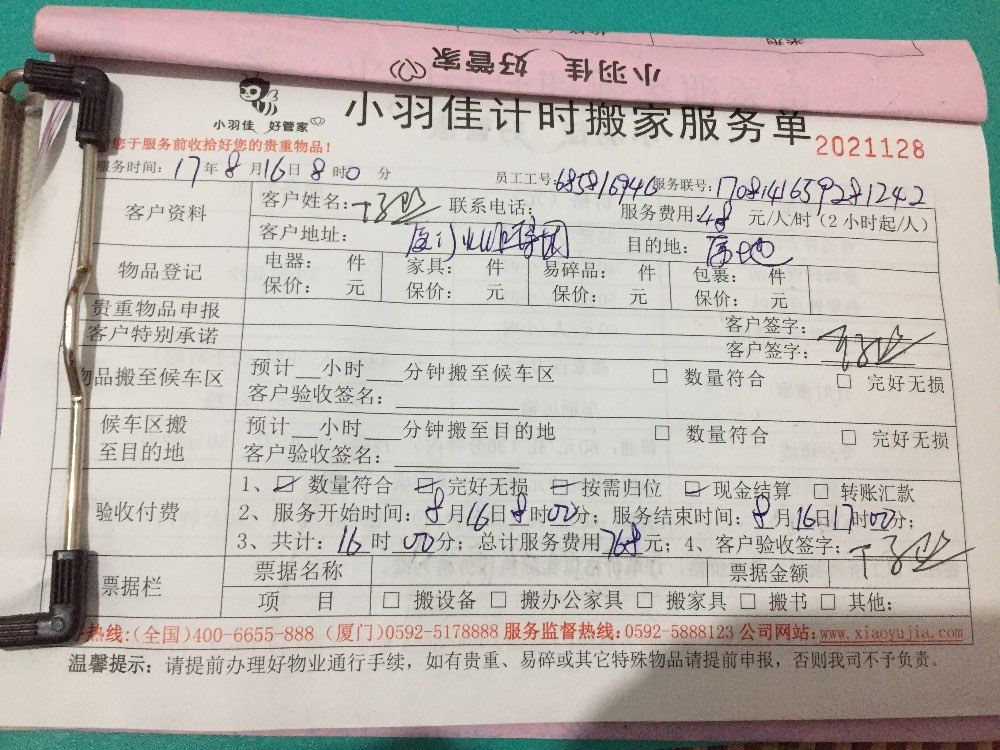 小羽佳 好管家
小羽佳 好管家
小羽佳计时搬家服务单
2021128
您于服务前收拾好您的贵重物品！
服务时间：17年8月16日8时0分 员工工号：685816940 服务联号：1708141659281242
客户资料 客户姓名： 联系电话： 服务费用：48元/人/时（2小时起/人）
客户地址： 目的地：
物品登记 电器： 件 家具： 件 易碎品： 件 包裹： 件
保价： 元 保价： 元 保价： 元 保价： 元
贵重物品申报 客户签字：
客户特别承诺 客户签字：
物品搬至候车区 预计___小时___分钟搬至候车区 □ 数量符合 □ 完好无损
客户验收签名：
候车区搬至目的地 预计___小时___分钟搬至目的地 □ 数量符合 □ 完好无损
客户验收签名：
验收付费 1、☑ 数量符合 ☑ 完好无损 ☑ 按需归位 ☑ 现金结算 □ 转账汇款
2、服务开始时间：8月16日8时00分；服务结束时间：8月16日17时00分；
3、共计：16时00分；总计服务费用768元；4、客户验收签字：
票据栏 票据名称 票据金额
项 目 □ 搬设备 □ 搬办公家具 □ 搬家具 □ 搬书 □ 其他：
热线：(全国)400-6655-888 (厦门)0592-5178888 服务监督热线：0592-5888123 公司网站：www.xiaoyujia.com
温馨提示：请提前办理好物业通行手续，如有贵重、易碎或其它特殊物品请提前申报，否则我司不予负责。